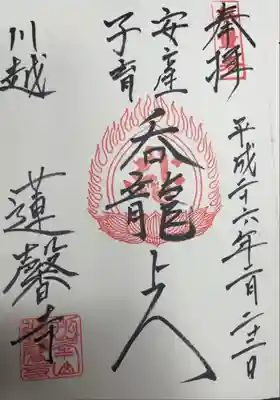 奉拝
平成二十六年二月二十三日
安産
子育
呑龍上人
川越
蓮馨寺